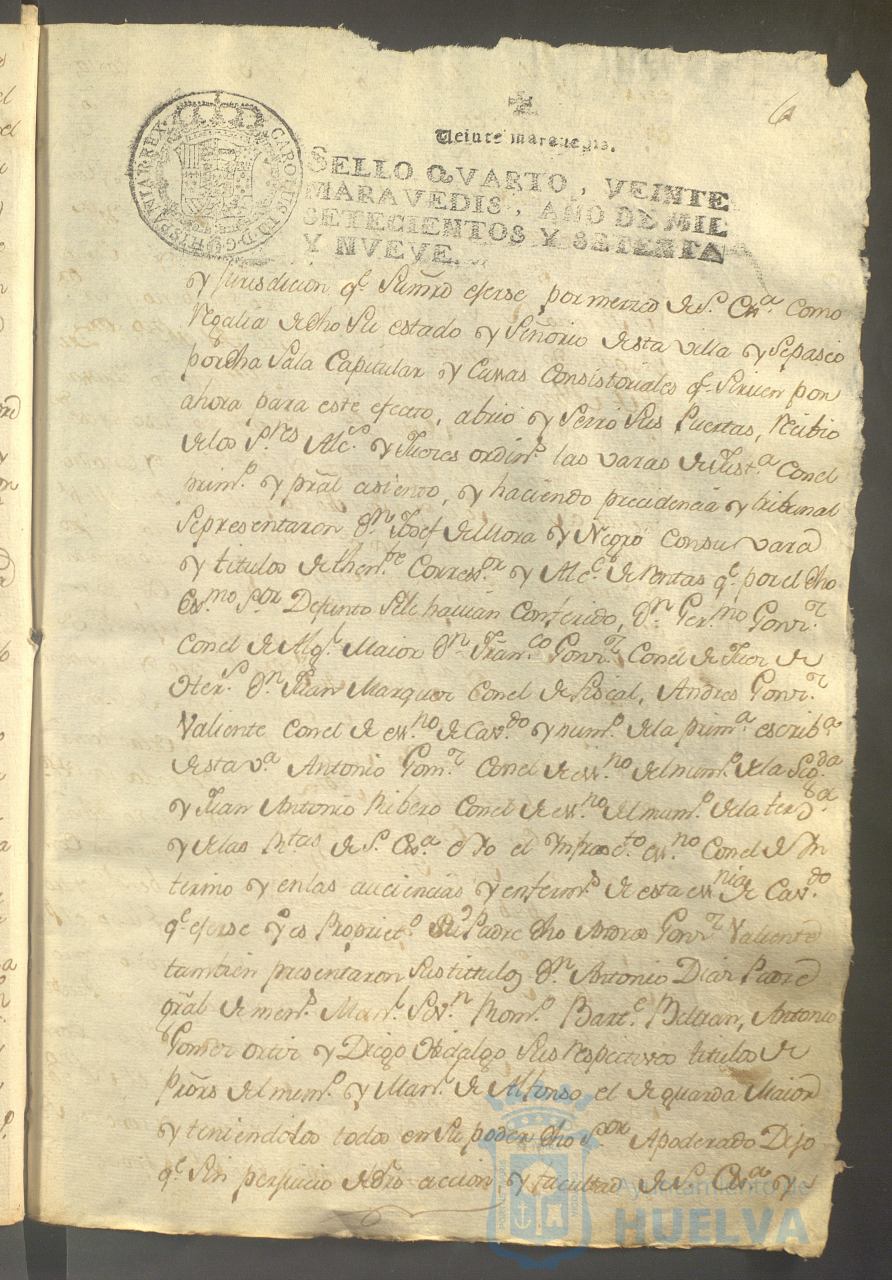 6
Veinte maravedis.
SELLO QVARTO, VEINTE
MARAVEDIS, AÑO DE MIL
SETECIENTOS Y SETENTA
Y NVEVE.
CAROLUS III D.G. HISPANIAR REX
y Jurisdicion q.e Su mrd eferse por merced de S. Ex.a como
Regalia de dho Su estado y Señorio desta villa y Sepaseo
por dha Sala Capitular y Casas Consistoriales q.e Siruen por
ahora para este efecto, abrio y Serró Sus Puertas, recibio
de los S.res Alc.s y Jueces ordin.s las varas de Just.a Con el
prim.o y pral asiento, y haciendo precidencia y tribunal
Sepresentaron D.n Josef de Mora y Negro Con su vara
y titulos de then.te Corres.or y Alc.e de Rentas q.e por el dho
Ex.mo S.or Defunto Sele havian Conferido, D.n Ger.mo Gonz.z
Con el de Alg.l Maior D.n Fran.co Gonz.z Con el de Juez de
Her.s D.n Juan Marquez Con el de Fiscal, Andres Gonz.z
Valiente Con el de ess.no de Cav.do y num.o de la prim.a escrib.a
desta v.a Antonio Gom.z Con el de ess.no del num.o de la Seg.da
y Juan Antonio Ribero Con el de ess.no del num.o de la ter.a
y de las R.tas de S. Ex.a e Yo el Ynfraesc.to ess.no Con el de Yn
terino y en las auciencias y enferm.s de esta ess.nia de Cav.do
q.e eferse y es Propriet.o Su Padre dho Andres Gonz.z Valiente
tambien presentaron Sus titulos D.n Antonio Diaz Padre
gral de men.s Man.l Sev.n Rom.o Bart.e Beltran, Antonio
Gomez Ortiz y Diego Hidalgo Sus respectivos titulos de
Prôrs del num.o y Man.l de Alfonso el de guarda Maior
y teniendolos todos en Su poder dho S.or Apoderado Dijo
q.e Sin perjuicio del dro accion y facultad de S. Ex.a y
Ayuntamiento de
HUELVA